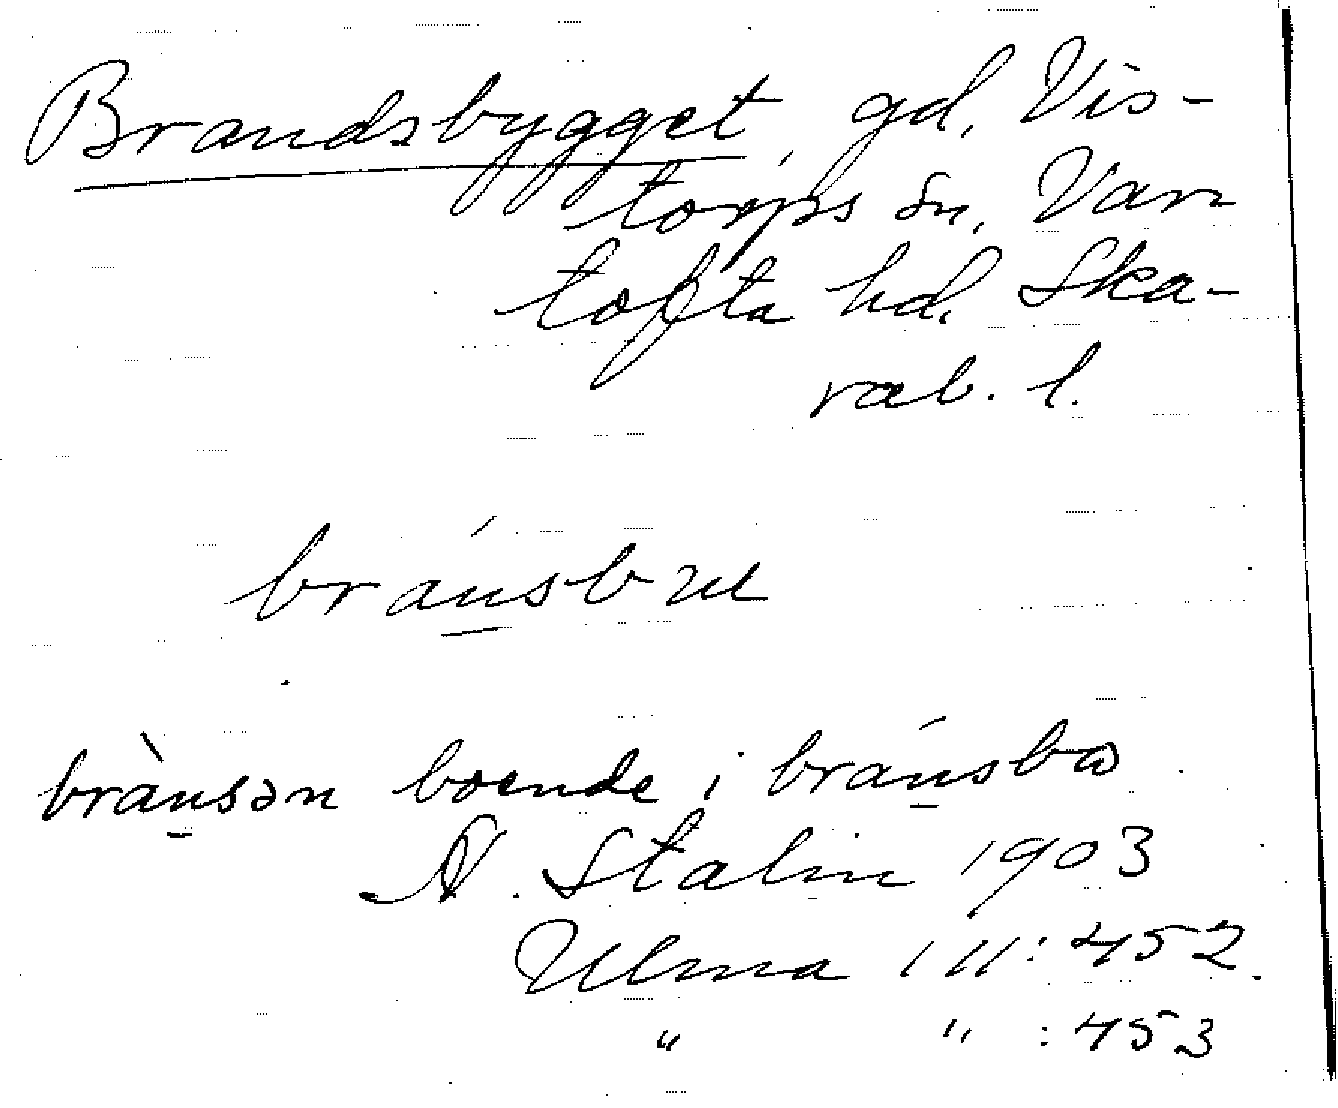 Brandsbygget, gd, Vis-
torps sn, Var
tofta hd, Ska-
rab. l.
bránsb
brànsən boende i bránsbω.
N. Stalin 1903
Ulma 111:452.
" " :453